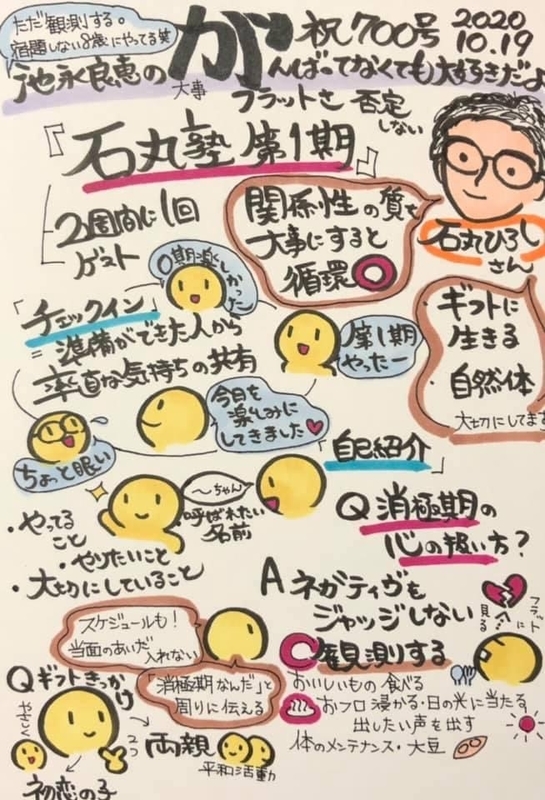 ただ観測する。
宿題しない8歳にやってる笑
祝700号
2020
10.19
池永良恵のがんばってなくても大好きだよ
大事
フラットさ 否定
しない
『石丸塾 第1期』
2週間に1回
ゲスト
関係性の質を
大事にすると
循環
石丸ひろし
さん
ギフトに
生きる
・自然体
大切にしてます
「チェックイン」
＝準備ができた人から
率直な気持ちの共有
0期楽しかった
第1期
やったー
今日を
楽しみに
してきました
ちょっと眠い
「自己紹介」
〜ちゃん
呼ばれたい
名前
・やってる
こと
・やりたいこと
・大切にしていること
Q 消極期の
心の扱い方？
A ネガティヴを
ジャッジしない
観測する
フラットに
見る
おいしいもの食べる
おフロ浸かる・日の光に当たる
出したい声を出す
体のメンテナンス・大豆
スケジュールも！
当面のあいだ
入れない
「消極期なんだ」と
周りに伝える
Qギフトきっかけ
やさしく
2つ
両親
平和活動
初恋の子